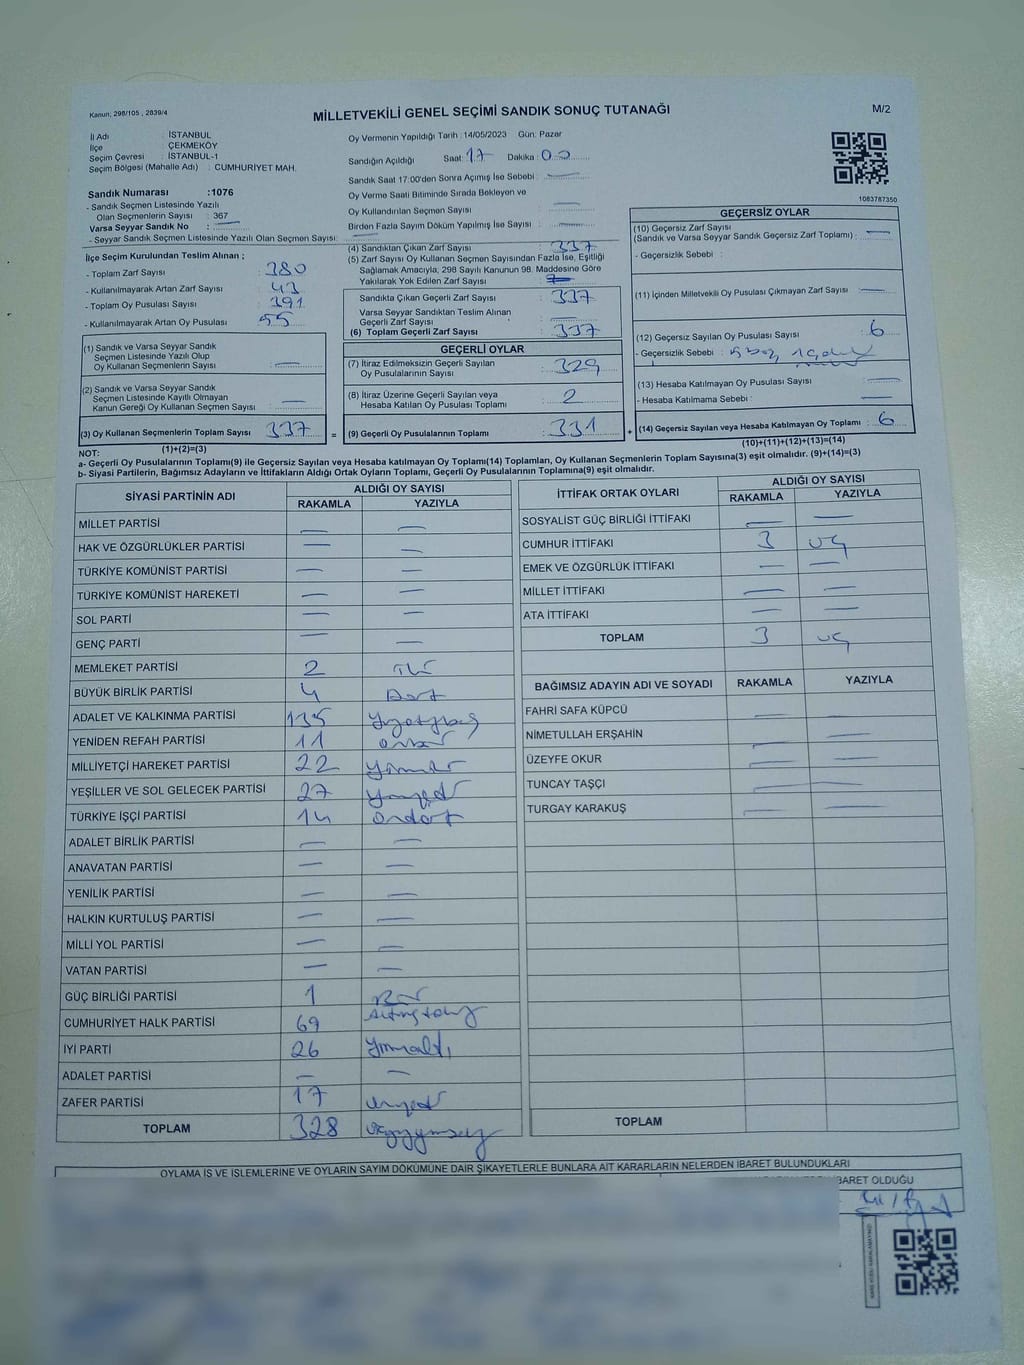 Kanun, 298/105 , 2839/4
MİLLETVEKİLİ GENEL SEÇİMİ SANDIK SONUÇ TUTANAĞI
M/2
İl Adı : İSTANBUL
İlçe : ÇEKMEKÖY
Seçim Çevresi : İSTANBUL-1
Seçim Bölgesi (Mahalle Adı) : CUMHURİYET MAH.
Sandık Numarası :1076
- Sandık Seçmen Listesinde Yazılı
Olan Seçmenlerin Sayısı : 367
Varsa Seyyar Sandık No : —
- Seyyar Sandık Seçmen Listesinde Yazılı Olan Seçmen Sayısı: —
Oy Vermenin Yapıldığı Tarih : 14/05/2023 Gün: Pazar
Sandığın Açıldığı Saat: 17 Dakika : 00
Sandık Saat 17:00'den Sonra Açılmış İse Sebebi : —
Oy Verme Saati Bitiminde Sırada Bekleyen ve
Oy Kullandırılan Seçmen Sayısı : —
Birden Fazla Sayım Döküm Yapılmış İse Sayısı : —
1083787350
İlçe Seçim Kurulundan Teslim Alınan ;
- Toplam Zarf Sayısı : 380
- Kullanılmayarak Artan Zarf Sayısı : 43
- Toplam Oy Pusulası Sayısı : 391
- Kullanılmayarak Artan Oy Pusulası : 55
(1) Sandık ve Varsa Seyyar Sandık
Seçmen Listesinde Yazılı Olup
Oy Kullanan Seçmenlerin Sayısı : —
(2) Sandık ve Varsa Seyyar Sandık
Seçmen Listesinde Kayıtlı Olmayan
Kanun Gereği Oy Kullanan Seçmen Sayısı : —
(3) Oy Kullanan Seçmenlerin Toplam Sayısı : 337 =
(1)+(2)=(3)
(4) Sandıktan Çıkan Zarf Sayısı : 337
(5) Zarf Sayısı Oy Kullanan Seçmen Sayısından Fazla İse, Eşitliği
Sağlamak Amacıyla, 298 Sayılı Kanunun 98. Maddesine Göre
Yakılarak Yok Edilen Zarf Sayısı :
Sandıkta Çıkan Geçerli Zarf Sayısı : 337
Varsa Seyyar Sandıktan Teslim Alınan
Geçerli Zarf Sayısı : —
(6) Toplam Geçerli Zarf Sayısı : 337
GEÇERLİ OYLAR
(7) İtiraz Edilmeksizin Geçerli Sayılan
Oy Pusulalarının Sayısı : 329
(8) İtiraz Üzerine Geçerli Sayılan veya
Hesaba Katılan Oy Pusulası Toplamı : 2
(9) Geçerli Oy Pusulalarının Toplamı : 331 +
GEÇERSİZ OYLAR
(10) Geçersiz Zarf Sayısı
(Sandık ve Varsa Seyyar Sandık Geçersiz Zarf Toplamı) : —
- Geçersizlik Sebebi :
(11) İçinden Milletvekili Oy Pusulası Çıkmayan Zarf Sayısı : —
(12) Geçersiz Sayılan Oy Pusulası Sayısı : 6
- Geçersizlik Sebebi :
(13) Hesaba Katılmayan Oy Pusulası Sayısı : —
- Hesaba Katılmama Sebebi : —
(14) Geçersiz Sayılan veya Hesaba Katılmayan Oy Toplamı : 6
(10)+(11)+(12)+(13)=(14)
NOT:
a- Geçerli Oy Pusulalarının Toplamı(9) ile Geçersiz Sayılan veya Hesaba katılmayan Oy Toplamı(14) Toplamları, Oy Kullanan Seçmenlerin Toplam Sayısına(3) eşit olmalıdır. (9)+(14)=(3)
b- Siyasi Partilerin, Bağımsız Adayların ve İttifakların Aldığı Ortak Oyların Toplamı, Geçerli Oy Pusulalarının Toplamına(9) eşit olmalıdır.
SİYASİ PARTİNİN ADI ALDIĞI OY SAYISI
RAKAMLA YAZIYLA
MİLLET PARTİSİ — —
HAK VE ÖZGÜRLÜKLER PARTİSİ — —
TÜRKİYE KOMÜNİST PARTİSİ — —
TÜRKİYE KOMÜNİST HAREKETİ — —
SOL PARTİ — —
GENÇ PARTİ — —
MEMLEKET PARTİSİ 2 iki
BÜYÜK BİRLİK PARTİSİ 4 Dört
ADALET VE KALKINMA PARTİSİ 135 yüzotuzbeş
YENİDEN REFAH PARTİSİ 11 onbir
MİLLİYETÇİ HAREKET PARTİSİ 22 yirmiiki
YEŞİLLER VE SOL GELECEK PARTİSİ 27 yirmiyedi
TÜRKİYE İŞÇİ PARTİSİ 14 ondört
ADALET BİRLİK PARTİSİ — —
ANAVATAN PARTİSİ — —
YENİLİK PARTİSİ — —
HALKIN KURTULUŞ PARTİSİ — —
MİLLİ YOL PARTİSİ — —
VATAN PARTİSİ — —
GÜÇ BİRLİĞİ PARTİSİ 1 Bir
CUMHURİYET HALK PARTİSİ 69 altmışdokuz
İYİ PARTİ 26 yirmialtı
ADALET PARTİSİ — —
ZAFER PARTİSİ 17 onyedi
TOPLAM 328 üçyüzyirmisekiz
İTTİFAK ORTAK OYLARI ALDIĞI OY SAYISI
RAKAMLA YAZIYLA
SOSYALİST GÜÇ BİRLİĞİ İTTİFAKI — —
CUMHUR İTTİFAKI 3 üç
EMEK VE ÖZGÜRLÜK İTTİFAKI — —
MİLLET İTTİFAKI — —
ATA İTTİFAKI — —
TOPLAM 3 üç
BAĞIMSIZ ADAYIN ADI VE SOYADI RAKAMLA YAZIYLA
FAHRİ SAFA KÜPCÜ — —
NİMETULLAH ERŞAHİN — —
ÜZEYFE OKUR — —
TUNCAY TAŞÇI — —
TURGAY KARAKUŞ — —
TOPLAM
OYLAMA İŞ VE İŞLEMLERİNE VE OYLARIN SAYIM DÖKÜMÜNE DAİR ŞİKAYETLERLE BUNLARA AİT KARARLARIN NELERDEN İBARET BULUNDUKLARI
BARET OLDUĞU